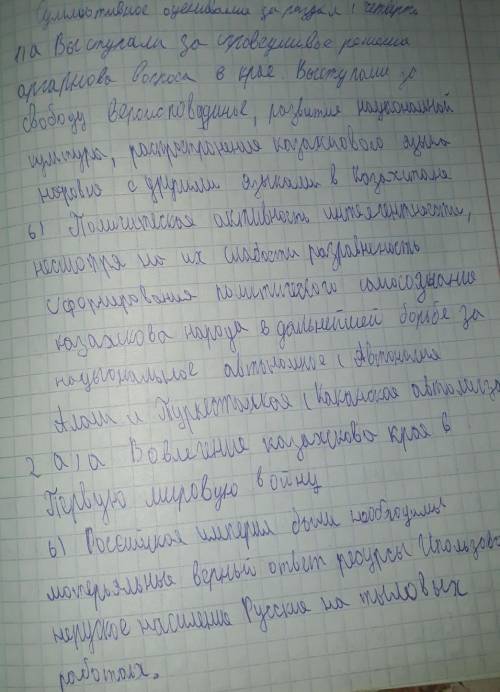 Суммативное оценивание за раздел 1 четверти
1) а Выступали за справедливое решения
аргарнова вопроса в крае. Выступали за
свободу вероисповединье, развития национальной
культура, распространения казахского языка
наровне с другими языками в Казахстане
б) Политическая активность интелегентности,
несмотря на их слабости разравненость
Сформирования политического самосознание
казахскова народа в дальнейшей борьбе за
национальное автономное (Автономия
Алаш и Туркестанкоя (Коканская автомиза
2 а) а Вовлечение казахскова края в
Первую мировую войну
б) Российская империя были необходимы
материяльные верный ответ ресурсы Использова
неруское насиление Русские на тыловых
работах.